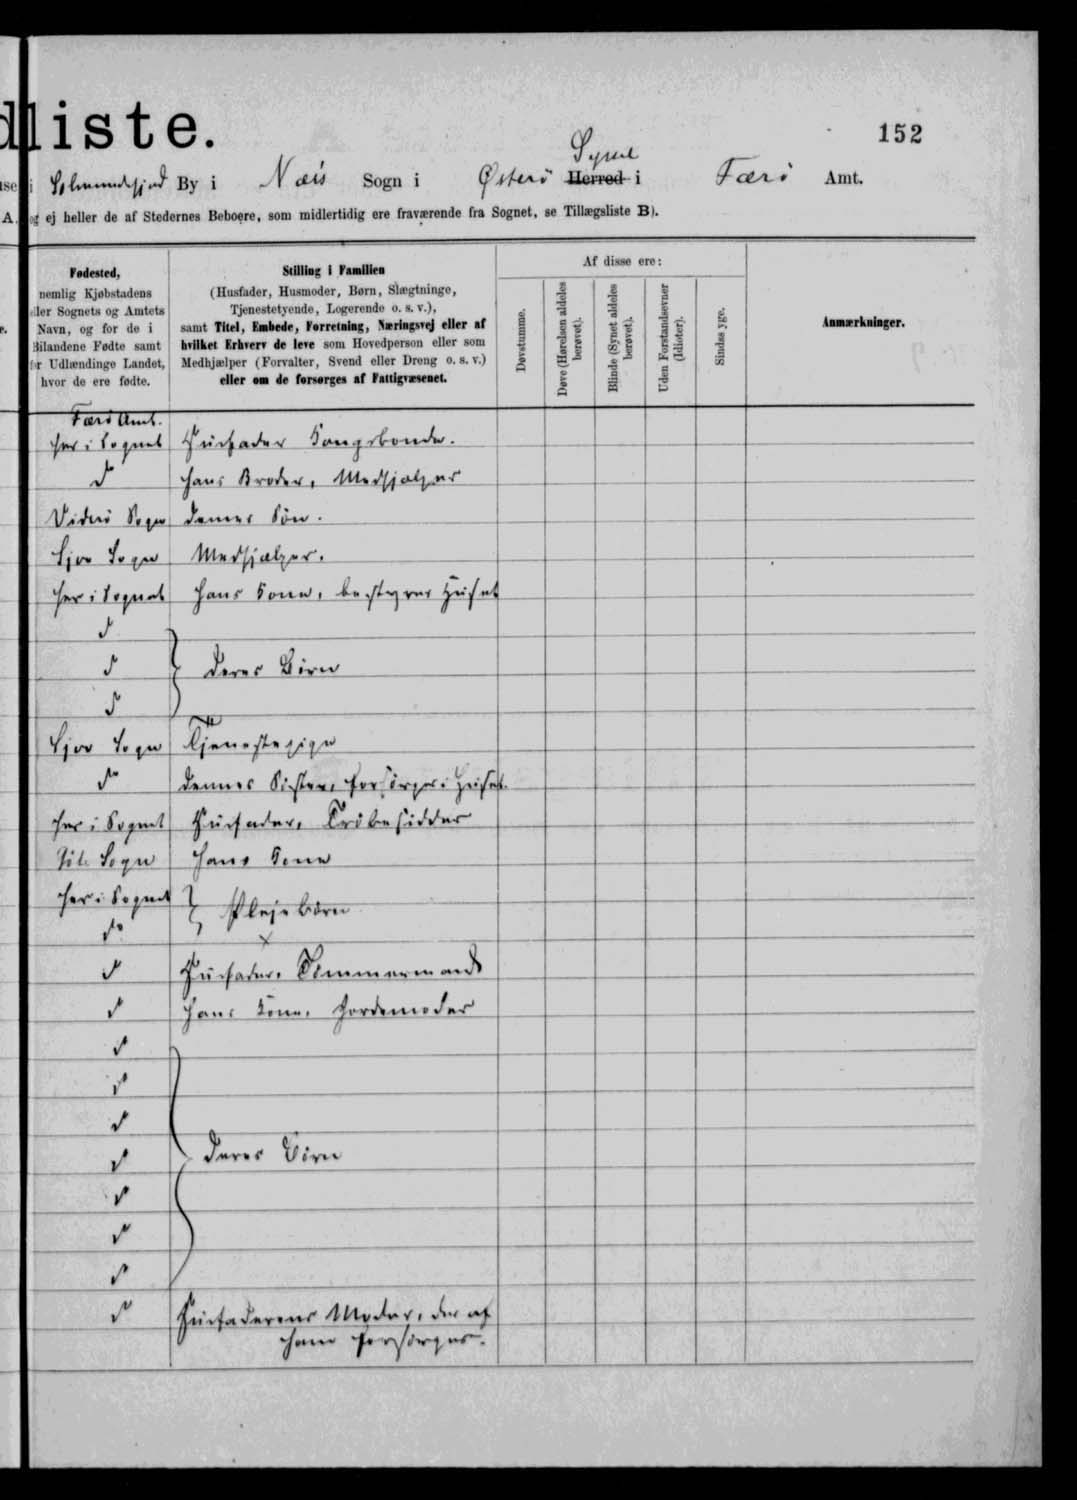 dliste.
152
Syssel
i Solmundefjord By i Næs Sogn i Østerö Herred i Færö Amt.
A. og ej heller de af Stedernes Beboere, som midlertidig ere fraværende fra Sognet, se Tillægsliste B).
Fødested,
nemlig Kjøbstadens
eller Sognets og Amtets
Navn, og for de i
Bilandene Fødte samt
for Udlændinge Landet,
hvor de ere fødte.
Stilling i Familien
(Husfader, Husmoder, Børn, Slægtninge,
Tjenestetyende, Logerende o. s. v.),
samt Titel, Embede, Forretning, Næringsvej eller af
hvilket Erhverv de leve som Hovedperson eller som
Medhjælper (Forvalter, Svend eller Dreng o. s. v.)
eller om de forsørges af Fattigvæsenet.
Af disse ere:
Døvstumme.
Døve (Hørelsen aldeles
berøvet).
Blinde (Synet aldeles
berøvet).
Uden Forstandsevner
(Idioter).
Sindssyge.
Anmærkninger.
Færö Amt.
her i Sognet Husfader Kongsbonde.
do hans Broder, Medhjælper
Viderö Sogn dennes Sön.
Sjov Sogn Medhjælper.
her i Sognet hans Kone, bestyrer Huset
do
do deres Börn
do
Sjov Sogn Tjenestepige
do dennes Sister, forsörges i Huset.
her i Sognet Husfader, Tröbesidder
Sogn hans Kone
her i Sognet Plejebörn
do
do Husfader, Tömmermand
do hans Kone, Jordemoder
do
do
do
do deres Börn
do
do
do
do Husfaderens Moder, der af
ham forsörges.